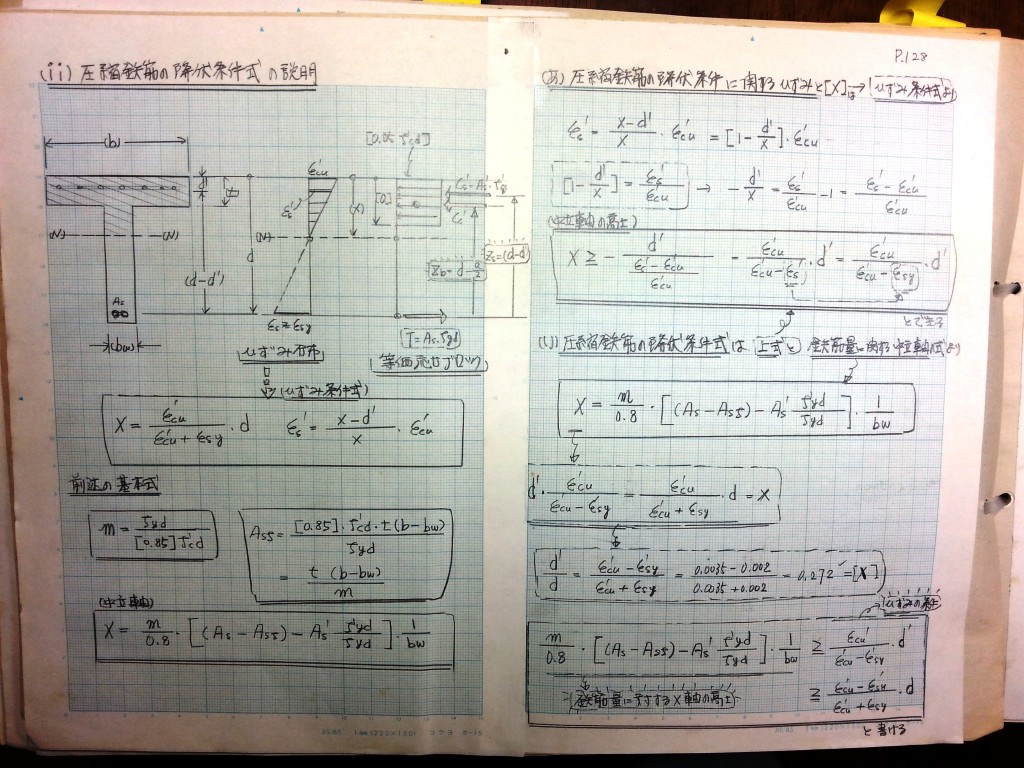 (ii) 圧縮鉄筋の降伏条件式の説明
(b)
[0.85 f'cd]
ε'cu
d'
t
ε's
(X)
C's = A's · f'yd
C'c
(N)
(N)
(N)
(d-d')
d
Zb = d - a/2
Zs = (d-d')
As
(bw)
εs ≧ εsy
T = As · fyd
ひずみ分布
等価応力ブロック
(ひずみ条件式)
X = ε'cu / (ε'cu + εsy) · d ε's = (x-d') / x · ε'cu
前述の基本式
m = fyd / ([0.85] f'cd)
Asf = [0.85] · f'cd · t (b-bw) / fyd
= t (b-bw) / m
(中立軸)
X = m / 0.8 · [(As - Asf) - A's f'yd / fyd] · 1 / bw
P.128
(あ) 圧縮鉄筋の降伏条件に関するひずみと[X]は → ひずみ条件式より
ε's = (x-d') / x · ε'cu = [1 - d'/x] · ε'cu
[1 - d'/x] = ε's / ε'cu → - d'/x = ε's / ε'cu - 1 = (ε's - ε'cu) / ε'cu
(中立軸の高さ)
X ≧ - d' / ((ε's - ε'cu) / ε'cu) = ε'cu / (ε'cu - ε's) · d' = ε'cu / (ε'cu - ε'sy) · d'
とできる
(い) 圧縮鉄筋の降伏条件式は 上式と 鉄筋量に関する中立軸の式より
X = m / 0.8 · [(As - Asf) - A's f'yd / fyd] · 1 / bw
d' · ε'cu / (ε'cu - ε'sy) = ε'cu / (ε'cu + εsy) · d = X
d' / d = (ε'cu - ε'sy) / (ε'cu + εsy) = (0.0035 - 0.002) / (0.0035 + 0.002) = 0.272 = [X]
ひずみの条件
m / 0.8 · [(As - Asf) - A's f'yd / fyd] · 1 / bw ≧ ε'cu / (ε'cu - ε'sy) · d'
鉄筋量に対するX軸の高さ
≧ (ε'cu - ε'sy) / (ε'cu + εsy) · d
と書ける